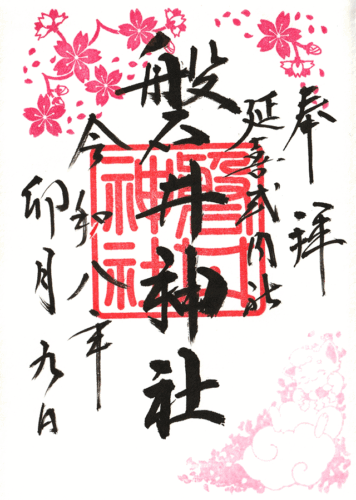 奉拝
延喜式内社
磐井神社
令和八年
卯月九日
磐井神社